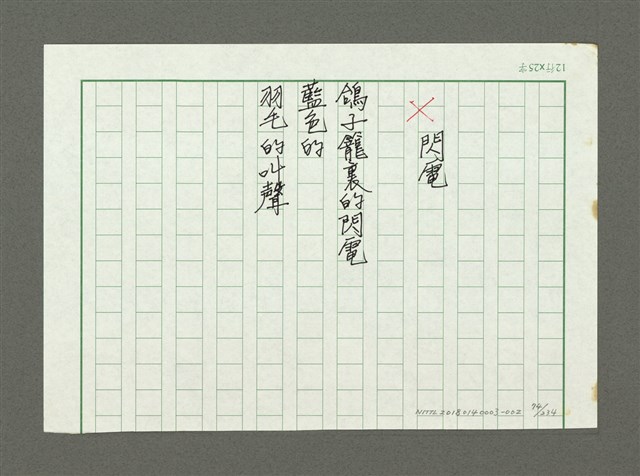 12行×25字
閃電
鴿子籠裏的閃電
藍色的
羽毛的叫聲
NMTL20180140003-002 74/234